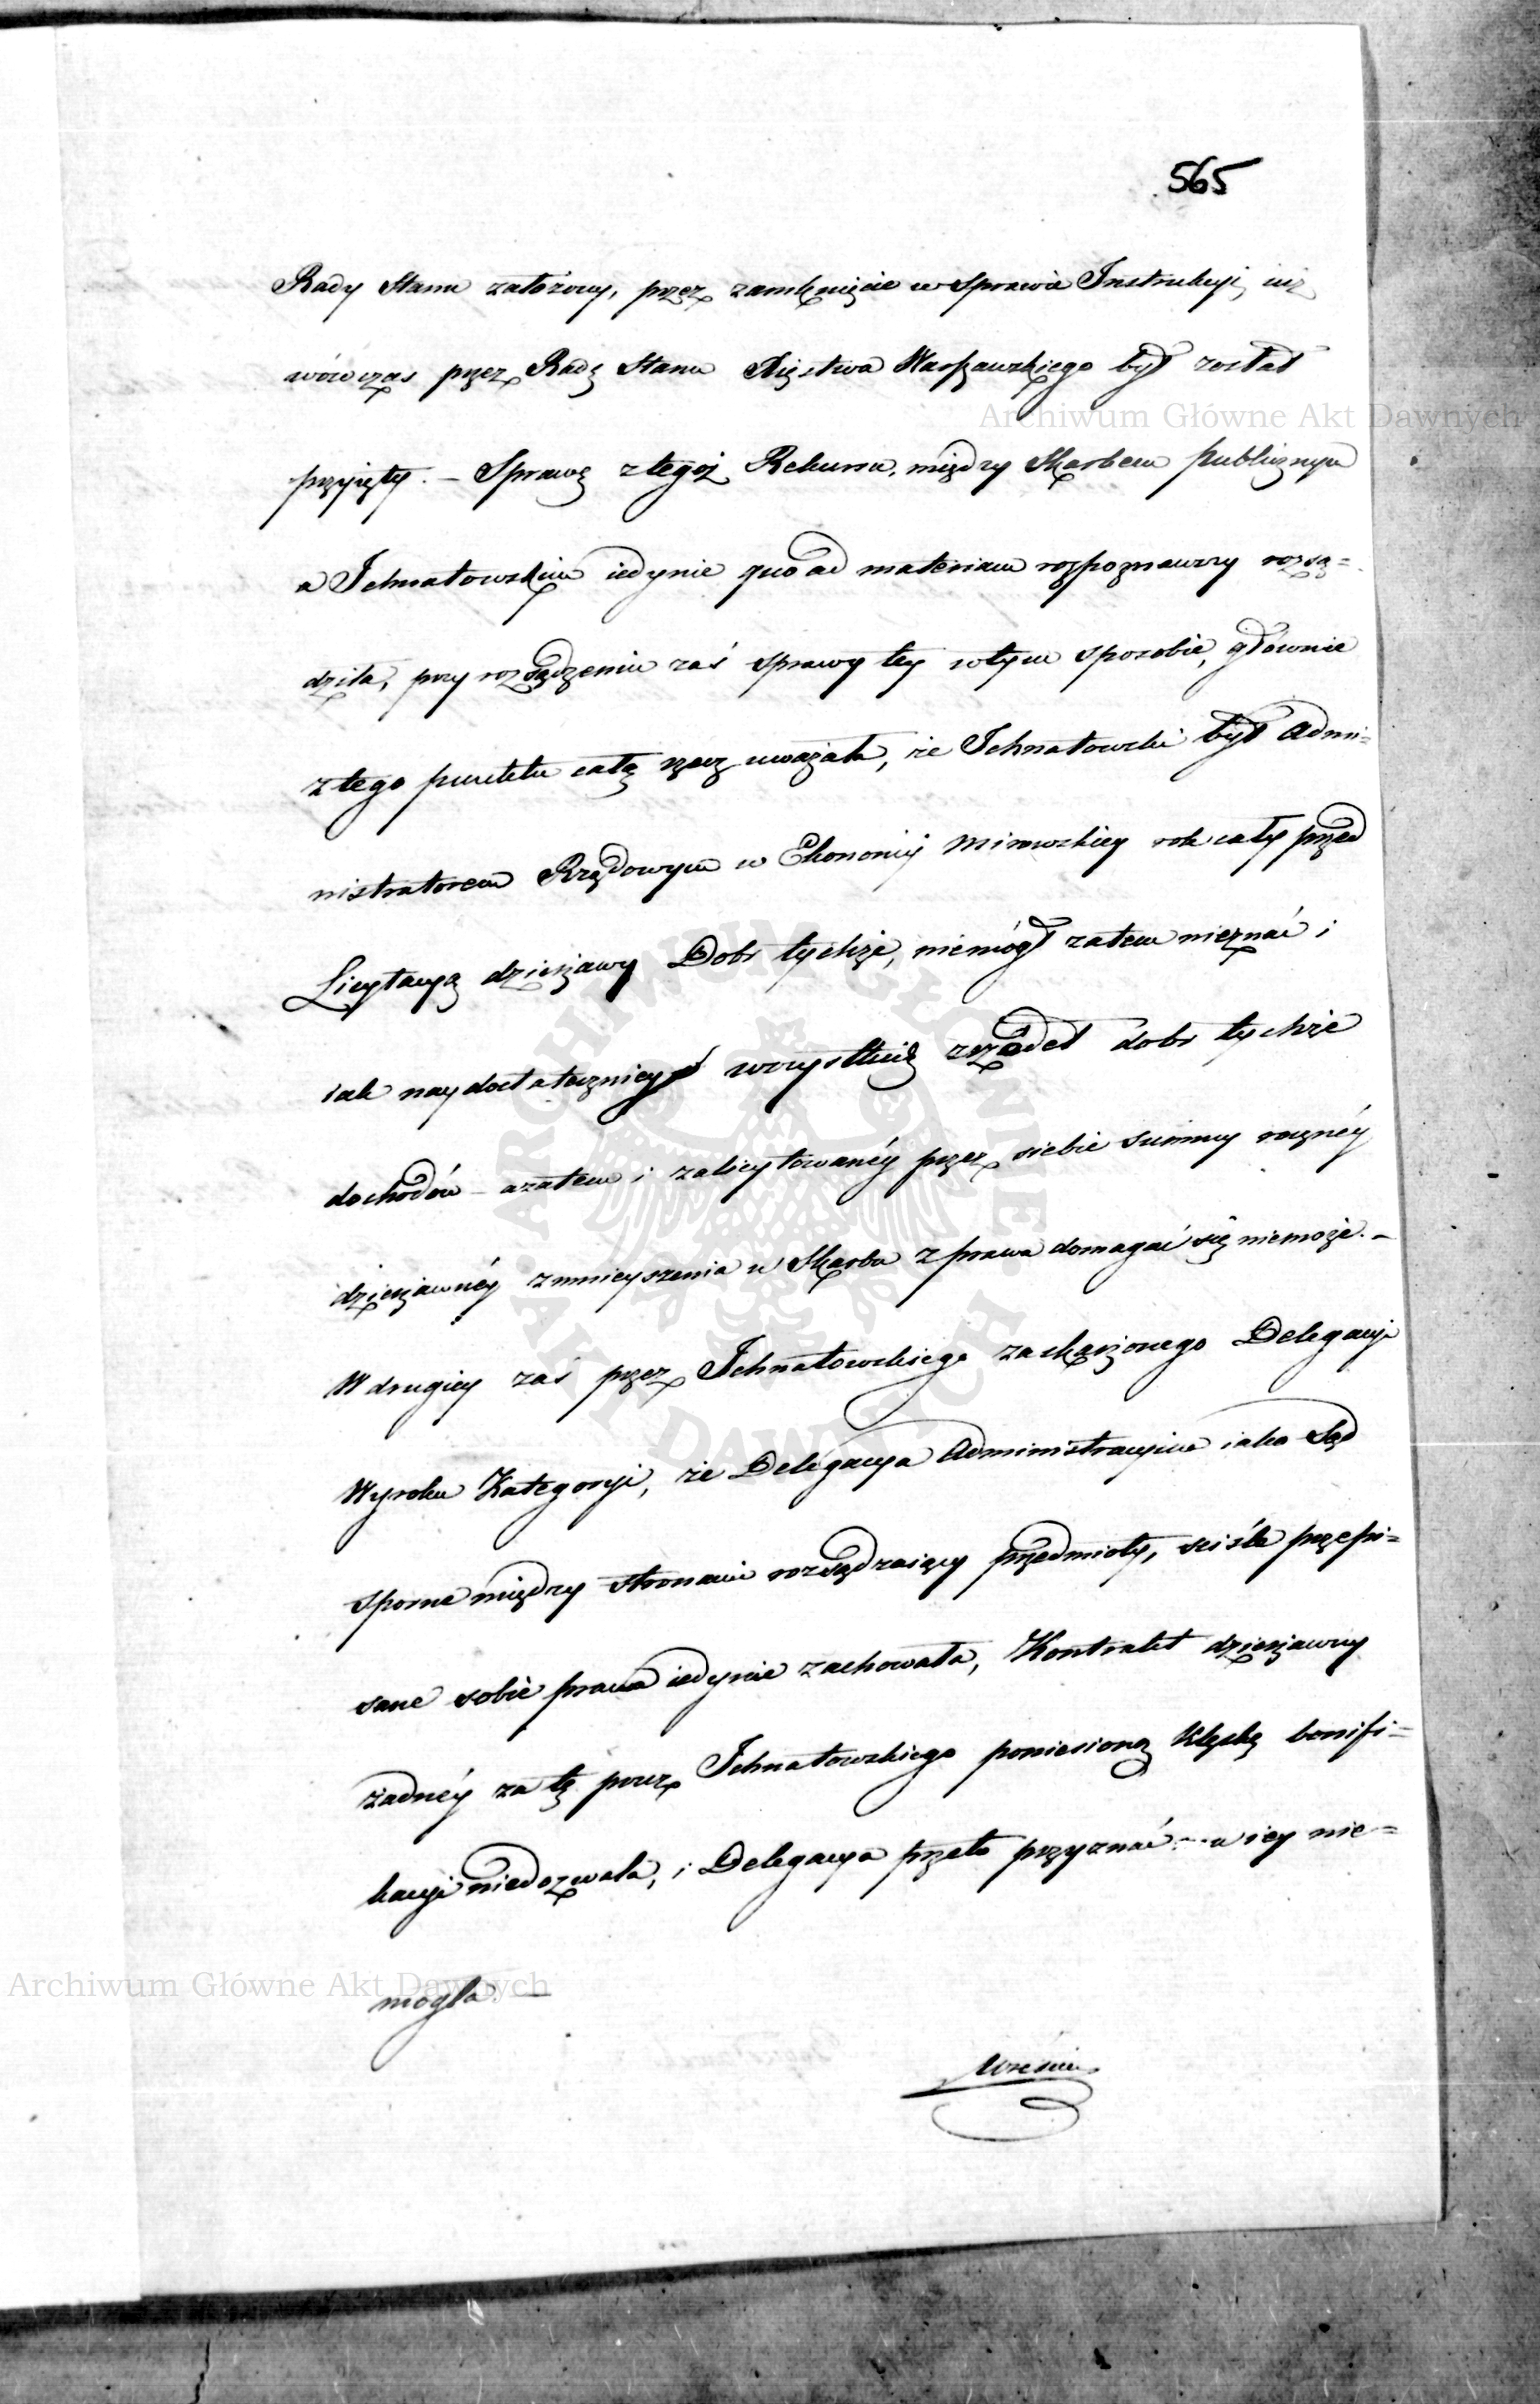 565
Rady Stanu założony, przez zamknięcie w Sprawie Instrukcyi, iuż
wówczas przez Radę Stanu Xięstwa Warszawskiego był został
Archiwum Główne Akt Dawnych
przyięty. – Sprawę z tegoż Rekursu, między Skarbem publicznym
a Ichnatowskim iedynie quo ad materiam rozpoznawszy rozsą=
dziła, przy rozsądzeniu zaś sprawy tey w tym sposobie, głównie
z tego punktu całą rzecz uważała, że Ichnatowski był Admi=
nistratorem Rządowym w Ekonomij Mirowskiey rok cały przed
Licytacyą dzierżawy Dobr tychże, niemógł zatem nieznać i
iak naydostateczniey wszystkich zrzódeł dobr tychże
dochodów – azatem i zalicytowanéy przez siebie Summy rocznéy
dzierżawnéy zmnieyszenia u Skarbu z prawa domagać się niemoże. –
W drugiey zaś przez Ichnatowskiego zaskarżonego Delegacyi
Wyroku Kategoryi, że Delegacya Administracyina iako Sąd
sporne między stronami rozsądzaiący przedmioty, ściśle przepi=
sane sobie prawa iedynie zachowała, Kontrakt dzierżawny
żadnéy za tę przez Ichnatowskiego poniesioną klęskę bonifi=
kacyi niedozwala, i Delegacya przeto przyznać iey nie=
mogła. –
Archiwum Główne Akt Dawnych
ARCHIWUM GŁÓWNE AKT DAWNYCH